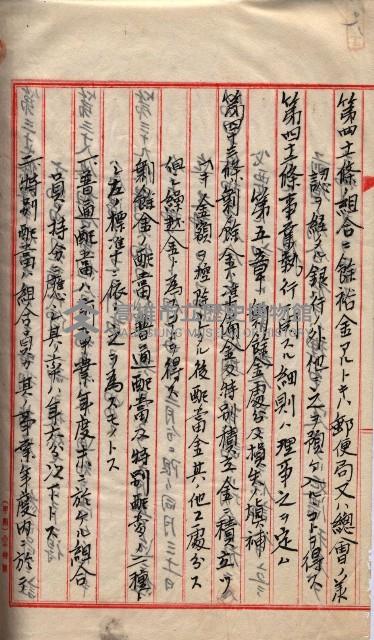 第四十一條組合ニ餘裕金アルトキハ郵便局又ハ總會ノ承
認ヲ經タル銀行ノ外他ニ之ヲ預ケ入ルコトヲ得ス
第四十二條事業執行ニ關スル細則ハ理事之ヲ定ム
第五章 剩餘金處分及損失ノ塡補
第四十三條剩餘金ハ準備金及特別積立金ニ積立ツ
ヘキ金額ヲ控除シタル後配當金其ノ他ニ處分ス
但シ繰越金ト為スコトヲ得
剩餘金ノ配當ハ普通配當及特別配當ノ二種トシ
左ノ標準ニ依リ之ヲ為スモノトス
一、普通配當ハ事業年度末ニ於ケル組合
員ノ持分ニ應シ其ノ率ハ年六分以下トス
二、特別配當ハ組合員カ其ノ事業年度內ニ於テ
高雄市立歷史博物館
KAOHSIUNG MUSEUM OF HISTORY